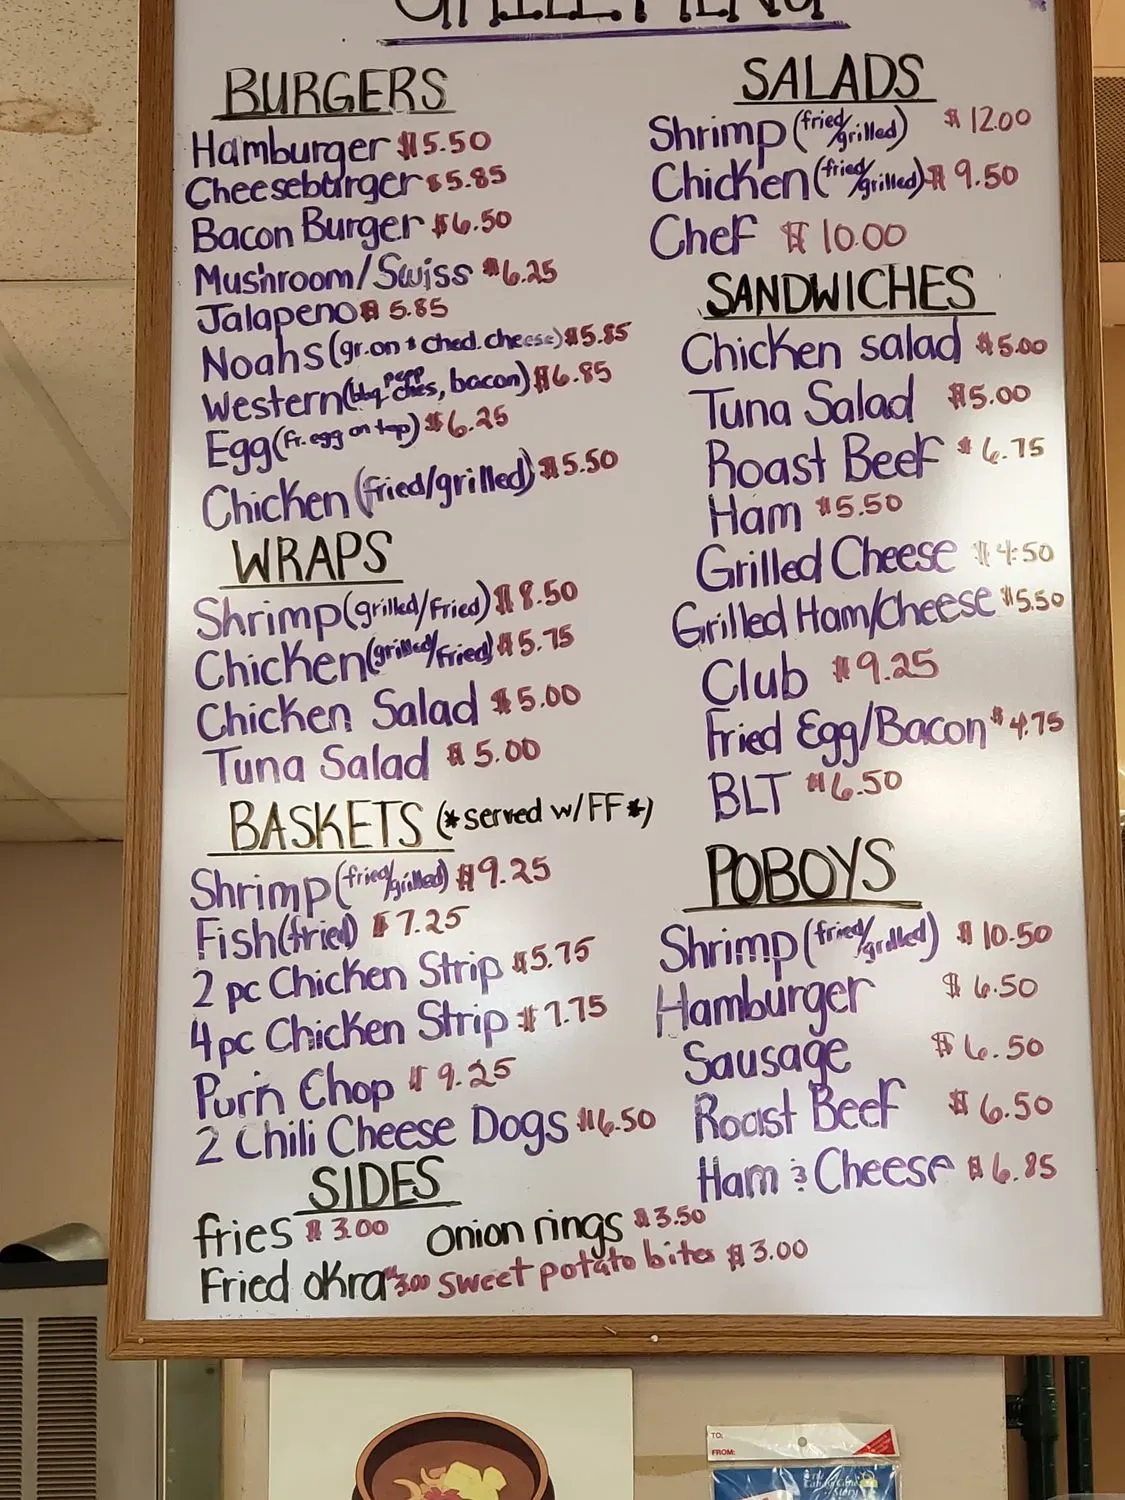 GRILL MENU
BURGERS
Hamburger $5.50
Cheeseburger $5.85
Bacon Burger $6.50
Mushroom/Swiss $6.25
Jalapeno $5.85
Noahs (gr.on + ched. cheese) $5.85
Western (bbq, pepp ches, bacon) $6.85
Egg (fr. egg on top) $6.25
Chicken (fried/grilled) $5.50
WRAPS
Shrimp (grilled/fried) $8.50
Chicken (grilled/fried) $5.75
Chicken Salad $5.00
Tuna Salad $5.00
BASKETS (*served w/FF*)
Shrimp (fried/grilled) $9.25
Fish (fried) $7.25
2 pc Chicken Strip $5.75
4 pc Chicken Strip $7.75
Purn Chop $9.25
2 Chili Cheese Dogs $6.50
SIDES
fries $3.00 onion rings $3.50
Fried okra $3.00 sweet potato bites $3.00
SALADS
Shrimp (fried/grilled) $12.00
Chicken (fried/grilled) $9.50
Chef $10.00
SANDWICHES
Chicken salad $5.00
Tuna Salad $5.00
Roast Beef $6.75
Ham $5.50
Grilled Cheese $4.50
Grilled Ham/Cheese $5.50
Club $9.25
Fried Egg/Bacon $4.75
BLT $6.50
POBOYS
Shrimp (fried/grilled) $10.50
Hamburger $6.50
Sausage $6.50
Roast Beef $6.50
Ham & Cheese $6.85
TO:
FROM: